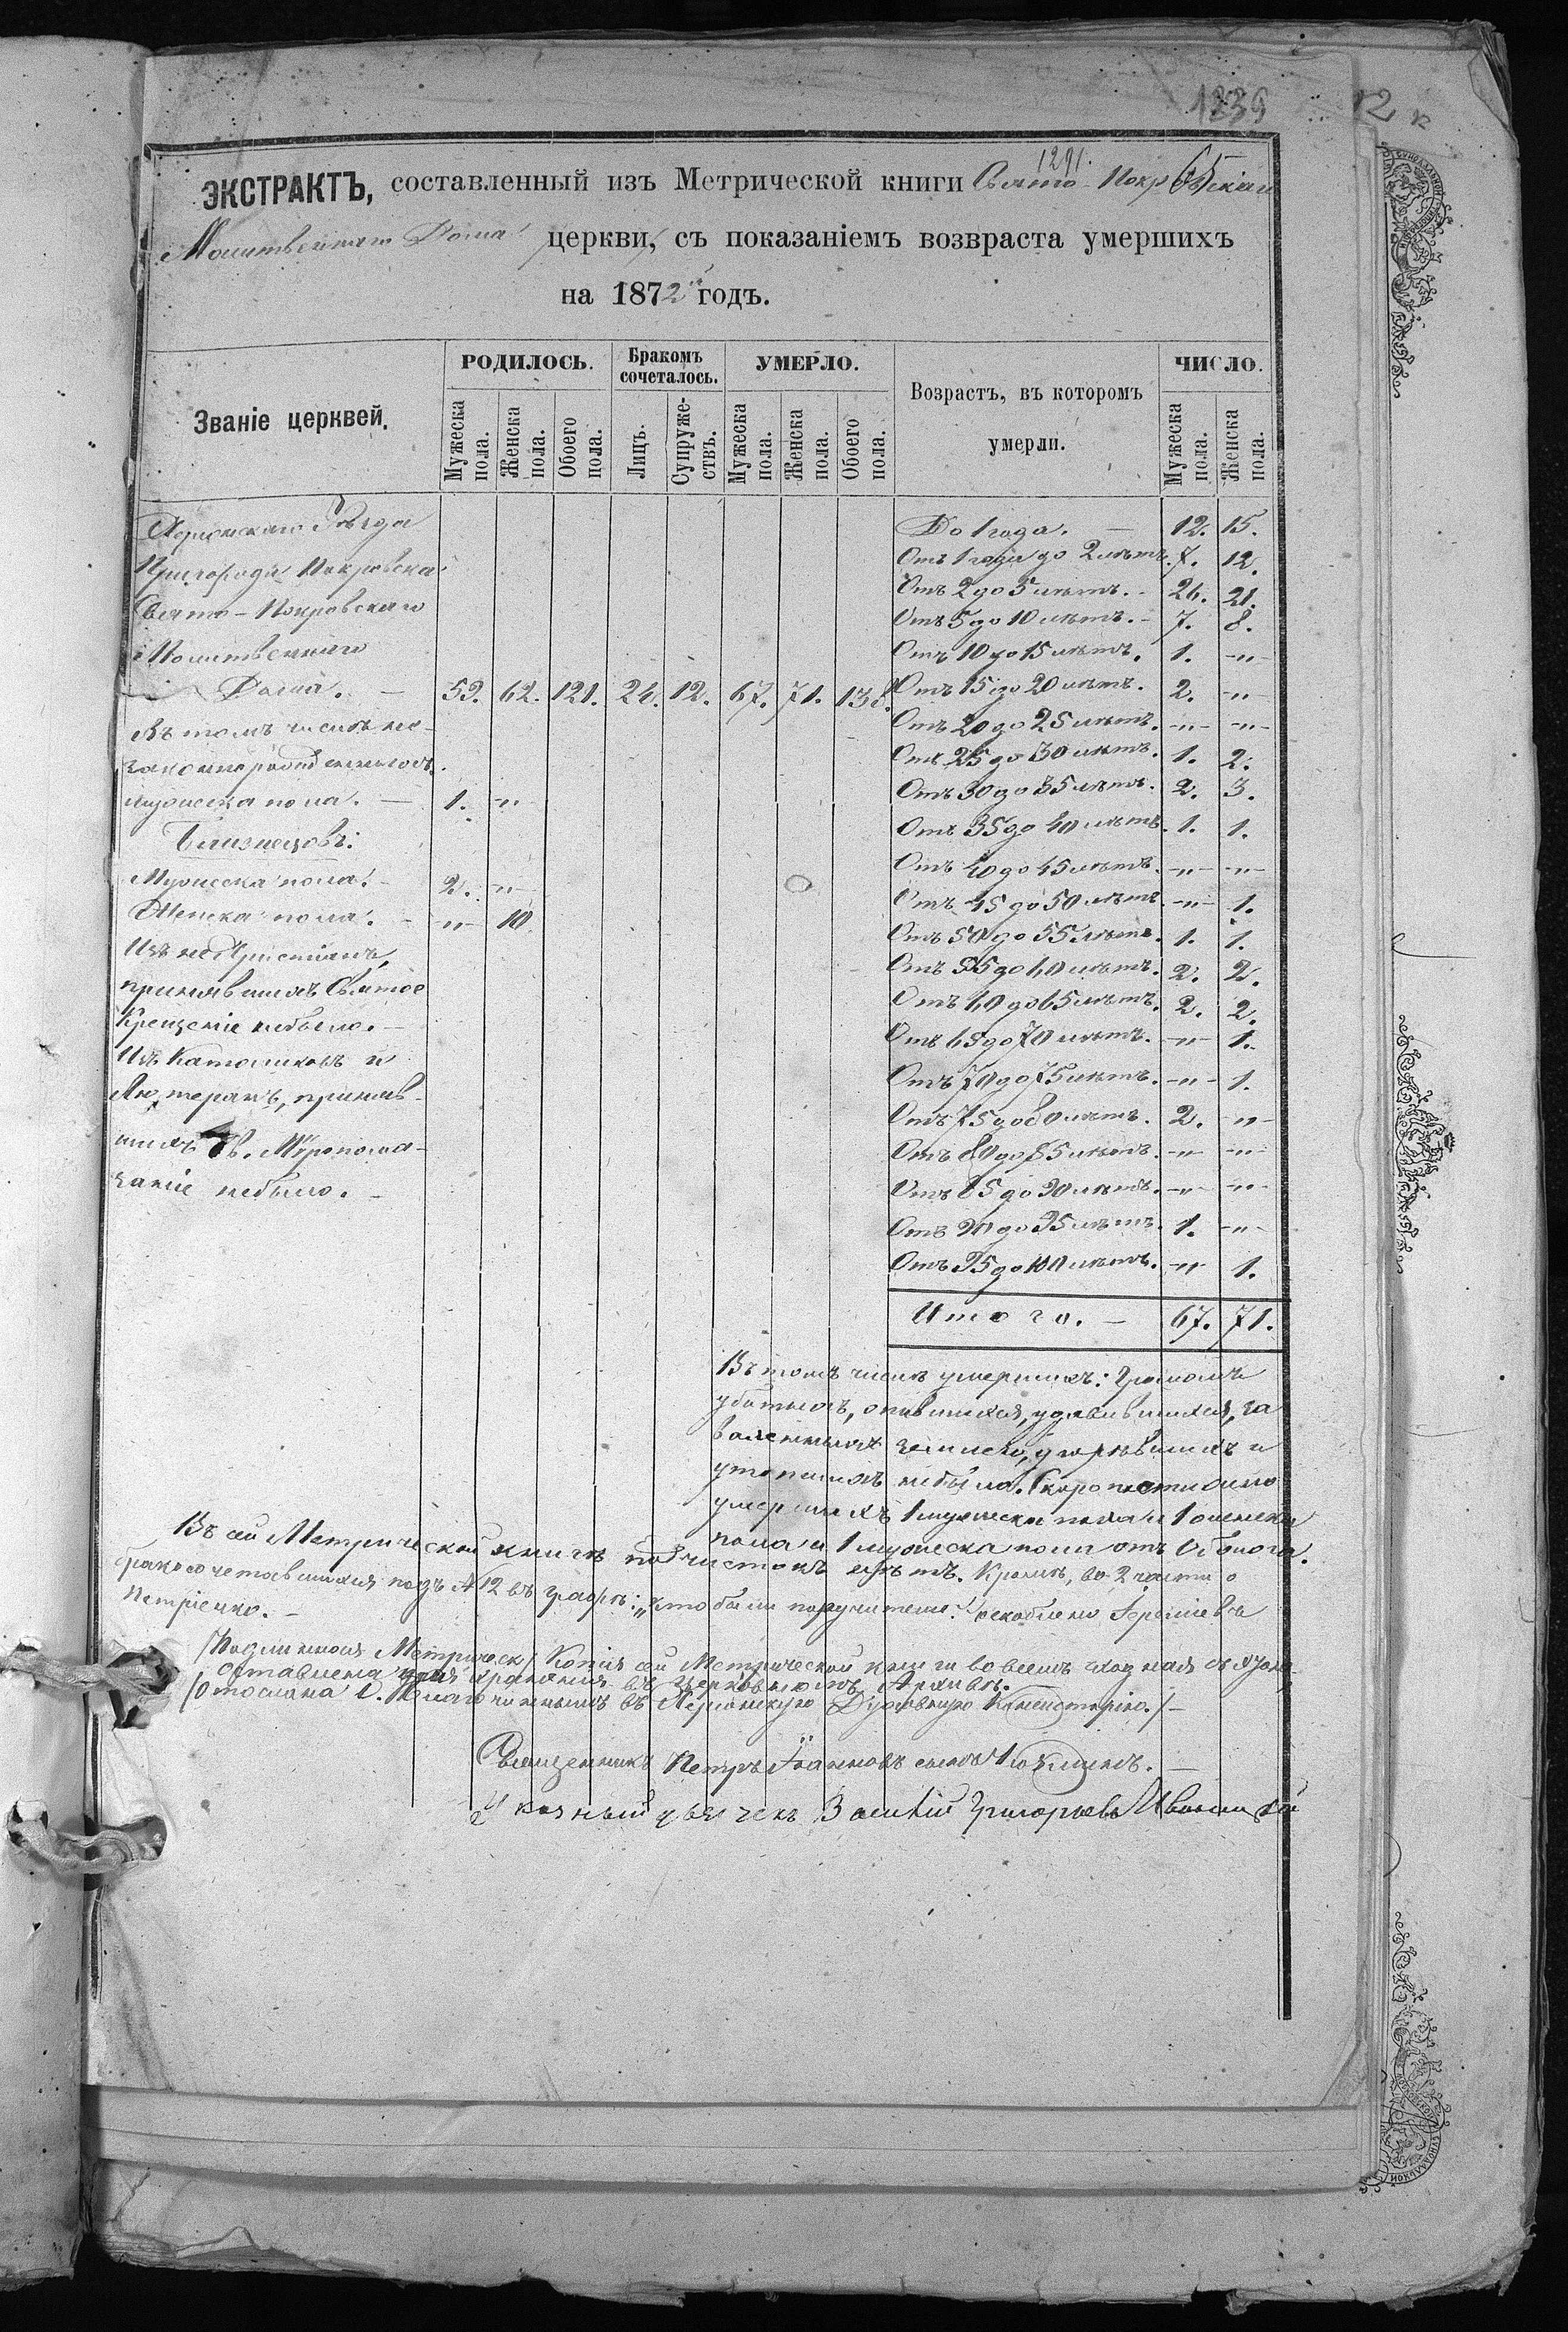 1239
12
1291.
65
ЭКСТРАКТЪ, составленный изъ Метрической книги Свято-Покровскаго
Молитвеннаго Дома церкви, съ показаніемъ возвраста умершихъ
на 1872 годъ.
Званіе церквей.
РОДИЛОСЬ.
Мужеска пола.
Женска пола.
Обоего пола.
Бракомъ сочеталось.
Лицъ.
Супружествъ.
УМЕРЛО.
Мужеска пола.
Женска пола.
Обоего пола.
Возрастъ, въ которомъ умерли.
ЧИСЛО.
Мужеска пола.
Женска пола.
Херсонскаго Уѣзда
Пригорода Покровска
Свято-Покровскаго
Молитвеннаго
Дома. — 59. 62. 121. 24. 12. 67. 71. 138.
Въ томъ числѣ не-
законнорожденныхъ
мужеска пола. — 1. -"-
Близнецовъ:
Мужеска пола. - 2. -"-
Женска пола. - -"- 10.
Изъ не Христіанъ,
принявшихъ Святое
Крещеніе небыло. —
Изъ Католиковъ и
Лютеранъ, приняв-
шихъ Св. Мѵропома-
заніе небыло. —
До 1 года. — 12. 15.
Отъ 1 года до 2 лѣтъ. 7. 12.
Отъ 2 до 5 лѣтъ. - 26. 21.
Отъ 5 до 10 лѣтъ. - 7. 8.
Отъ 10 до 15 лѣтъ. 1. -"-
Отъ 15 до 20 лѣтъ. 2. -"-
Отъ 20 до 25 лѣтъ. -"- -"-
Отъ 25 до 30 лѣтъ. 1. 2.
Отъ 30 до 35 лѣтъ. 2. 3.
Отъ 35 до 40 лѣтъ. 1. 1.
Отъ 40 до 45 лѣтъ. -"- -"-
Отъ 45 до 50 лѣтъ. -"- 1.
Отъ 50 до 55 лѣтъ. 1. 1.
Отъ 55 до 60 лѣтъ. 2. 2.
Отъ 60 до 65 лѣтъ. 2. 2.
Отъ 65 до 70 лѣтъ. -"- 1.
Отъ 70 до 75 лѣтъ. -"- 1.
Отъ 75 до 80 лѣтъ. 2. -"-
Отъ 80 до 85 лѣтъ. -"- -"-
Отъ 85 до 90 лѣтъ. -"- -"-
Отъ 90 до 95 лѣтъ. 1. -"-
Отъ 95 до 100 лѣтъ. -"- 1.
Итого. — 67. 71.
Въ томъ числѣ умершихъ: Громомъ
убитыхъ, опившихся, удавившихся, за
валенныхъ землею, угорѣвшихъ и
утопшихъ небыло. Скоропостижно
умершихъ 1 мужеска пола и 1 женска
пола и 1 мужеска пола отъ
Въ сей Метрической книгѣ подчистокъ нѣтъ. Кромѣ, во 2 части о
бракосочетавшихся подъ № 12 въ графѣ: „кто были поручители"
Петріенко. —
/Подлинная Метрическ/ Копія сей Метрической книги во всемъ
оставлена для храненія въ Церковномъ Архивѣ. —
/Отослана О. Благочиннымъ въ Херсонскую Духовную Консисторію./ —
Священникъ Петръ Іоанновъ сынъ
Указный дьячекъ Василій Григорьевъ